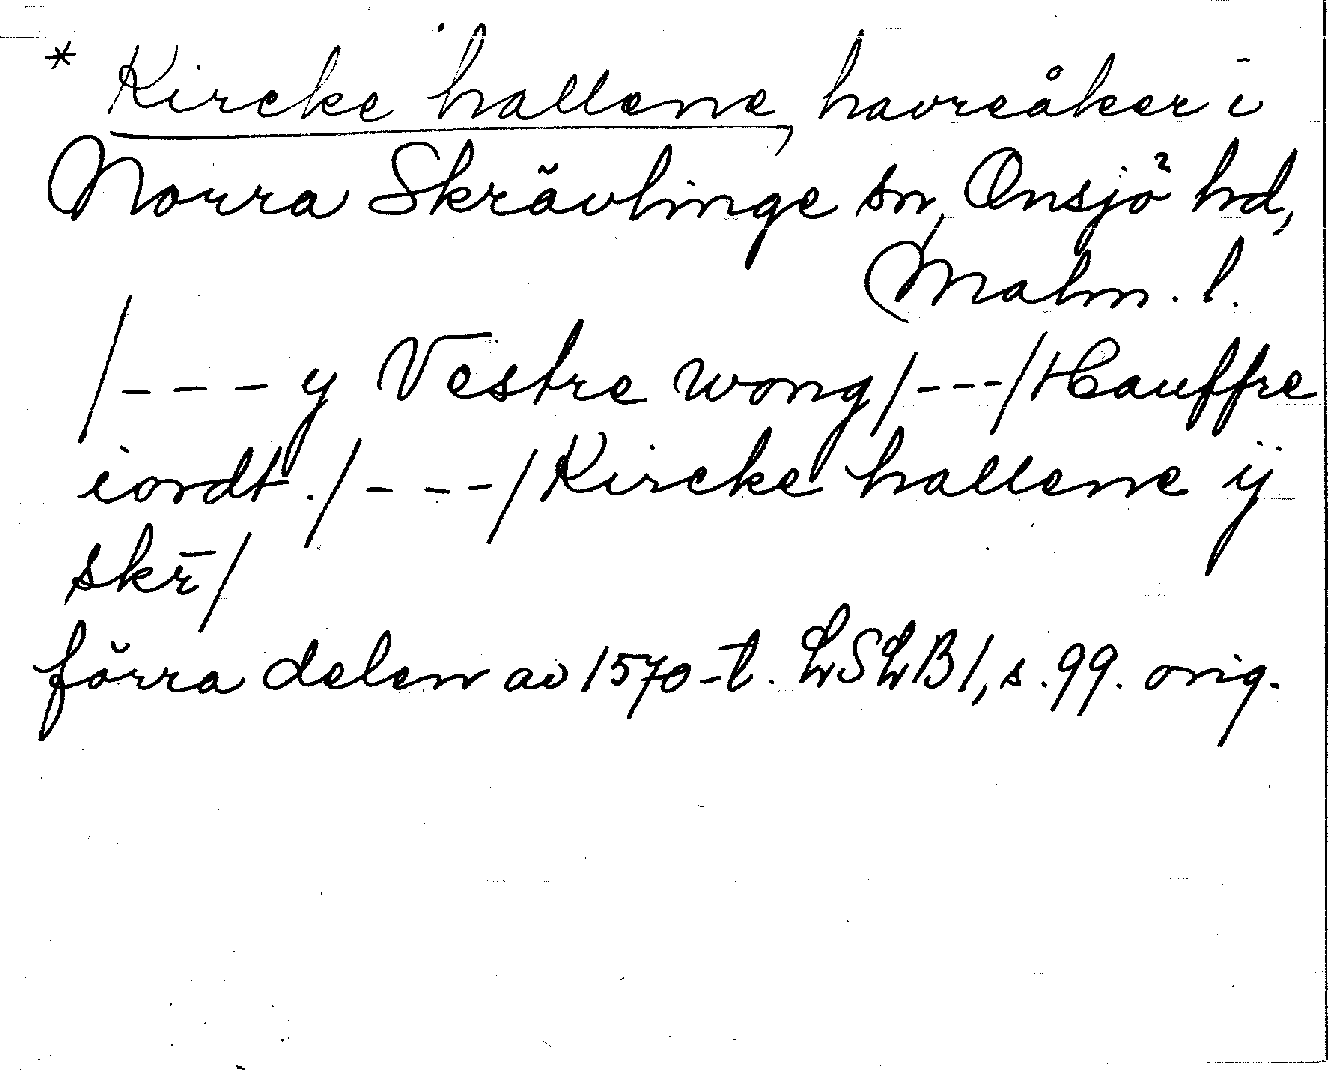 * Kircke hallene, havreåker i
Norra Skrävlinge sn, Onsjö hd,
Malm. l.
/--- y Vestre wong/---/Hauffre
iordt./---/Kircke hallene ij
skr̄/
förra delen av 1570-t. LSLB 1, s. 99. orig.